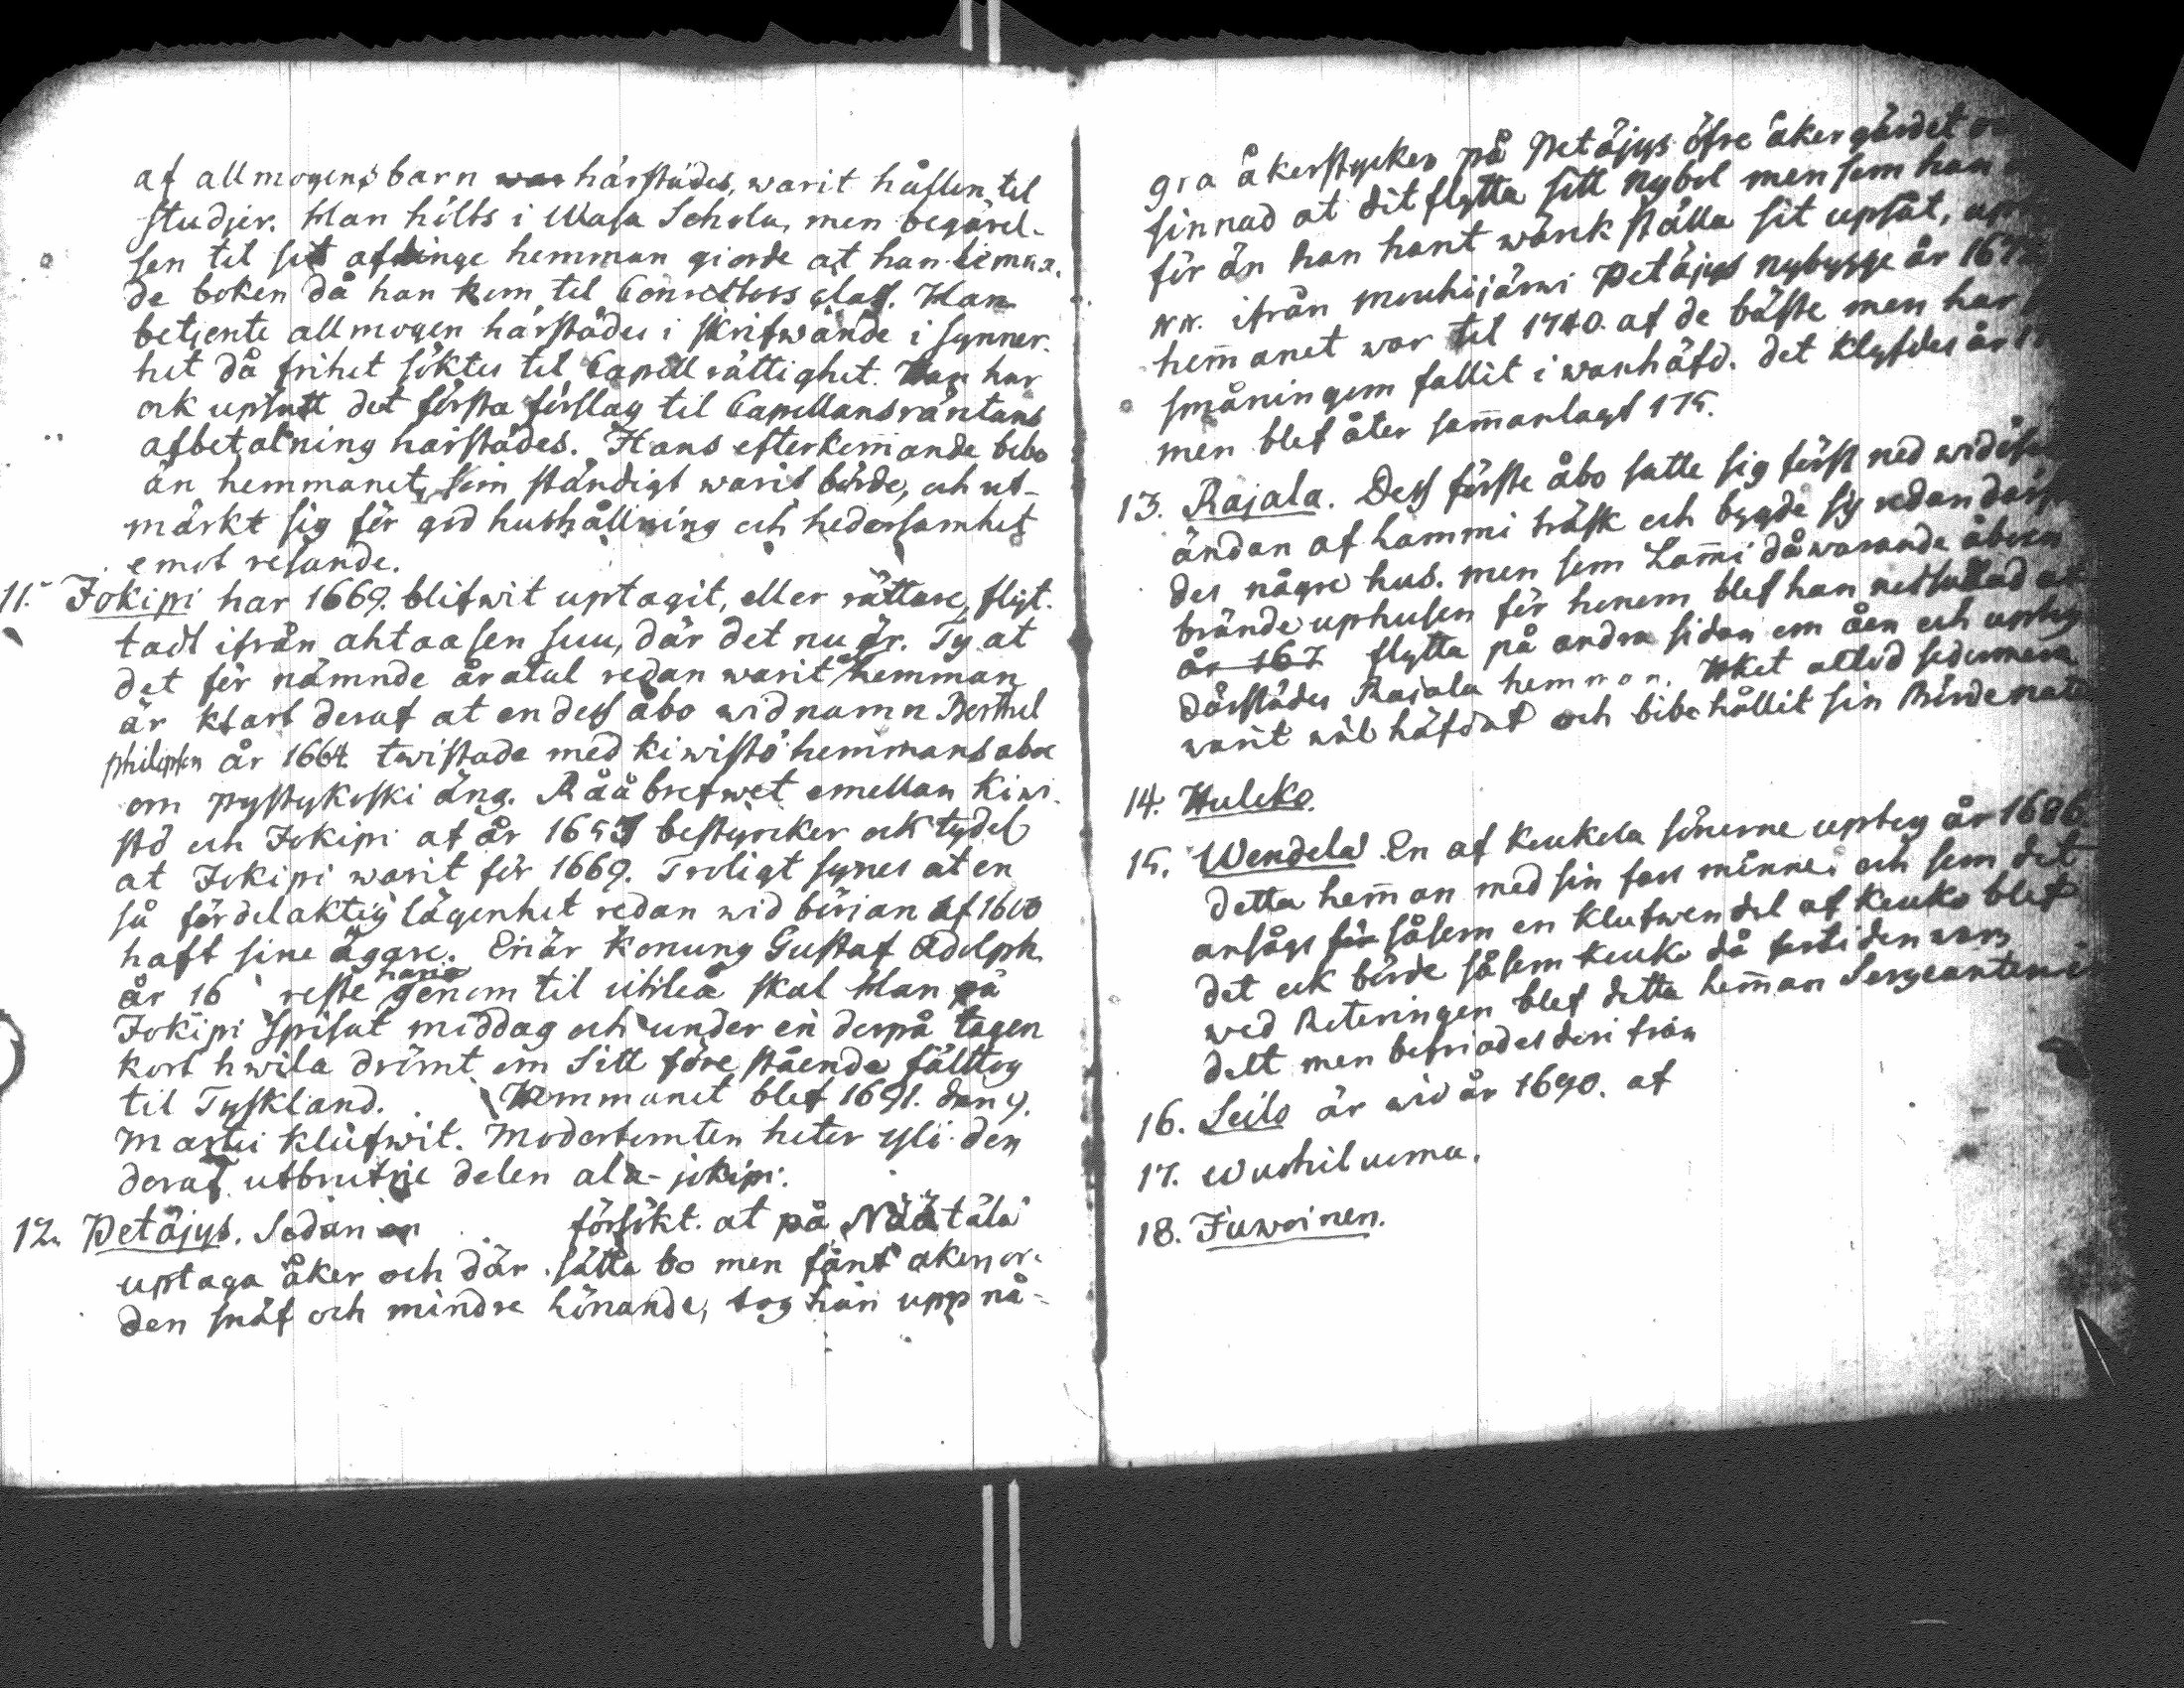 af allmogens barn war härstädes, warit hållen til
studjer. Han hölts i Wasa Schola, men begärel-
sen til sit aflinge hemman giorde at han lämna-
de boken då han kom til Conrectors class. Han
betjente allmogen härstädes i skrifwände i synner-
het då frihet söktes til Capell rättighet. Han har
ock upsatt det första förslag til Capellansräntans
afbetalning härstädes. Hans efterkom̄ande bebo
än hemmanet, som ständigt warit börde, och ut-
märkt sig för god hushållning och hedersamhet
emot resande.
11. Jokipi har 1669. blifwit uptagit, eller rättare, flyt-
tadt ifrån ahtaasen suu, där det nu är. Ty at
det för nämnde åratal redan warit hemman
är klart deraf at en dess åbo wid namn Berthel
philipsen år 1664 twistade med kiwistö hemmans aboe
om pystykoski äng. Rååbrefwet emellan Kiwi-
stö och Jokipi af år 1653 bestyrcker ock tydel
at Jokipi warit för 1669. Troligt synes at en
så fördelaktig lägenhet redan wid börian af 1600
haft sine ägare. Enär Konung Gustaf Adolph
år 16 reste häri genom til uhleå skal Han på
Jokipi spisat middag och under en derpå tagen
kort hwila drömt om Sitt före stående fälttog
til Tyskland. Hemmanet blef 1691. den 9.
Martii klufwit. Moderstomten heter yli den
deraf utbrutne delen ala-jokipi.
12. Petäjys. Sedan an försökt at på Näätälä
uptaga åker och där sätta bo men fant åkerjor-
den snäf och mindre lönande, tog han upp nå-
gra åkerstycken på Petäjys öfre åkergärdet
sinnad at dit flytta sitt Nybol men som han
för än han hant wärckställa sit upsåt,
NN. ifrån mouhijärwi Petäjys nybygge år 167
hem̄anet war til 1740. af de bäste men har
småningom fallit i wanhäfd. det klyfdes år 17
men blef åter sam̄anlagt 175.
13. Rajala. Dess förste åbo satte sig först ned wid
ändan af Lammi träsk och bygde sig redan
des några hus. men som Lam̄i då warande åboen
brände up husen för honom blef han nödsakad at
år 167 flytta på andra sidan om åen och uptog
därstädes Rajala hemman. Hket altid sedermera
warit wäl häfdat och bibehållit sin Börde natu
14. Huleko.
15. Wendelä. En af Keukela sönerne uptog år 1686.
detta hem̄an med sin fars minne och som det
ansågs för såsom en klufwen del af Keuko blef
det ock börde såsom Keuko då fortiden war,
wed Roteringen blef detta hem̄an Sergeanten
delt men befriades deri från
16. Leilo är wid år 1690. af
17. Wuohiluoma.
18. Juwoinen.